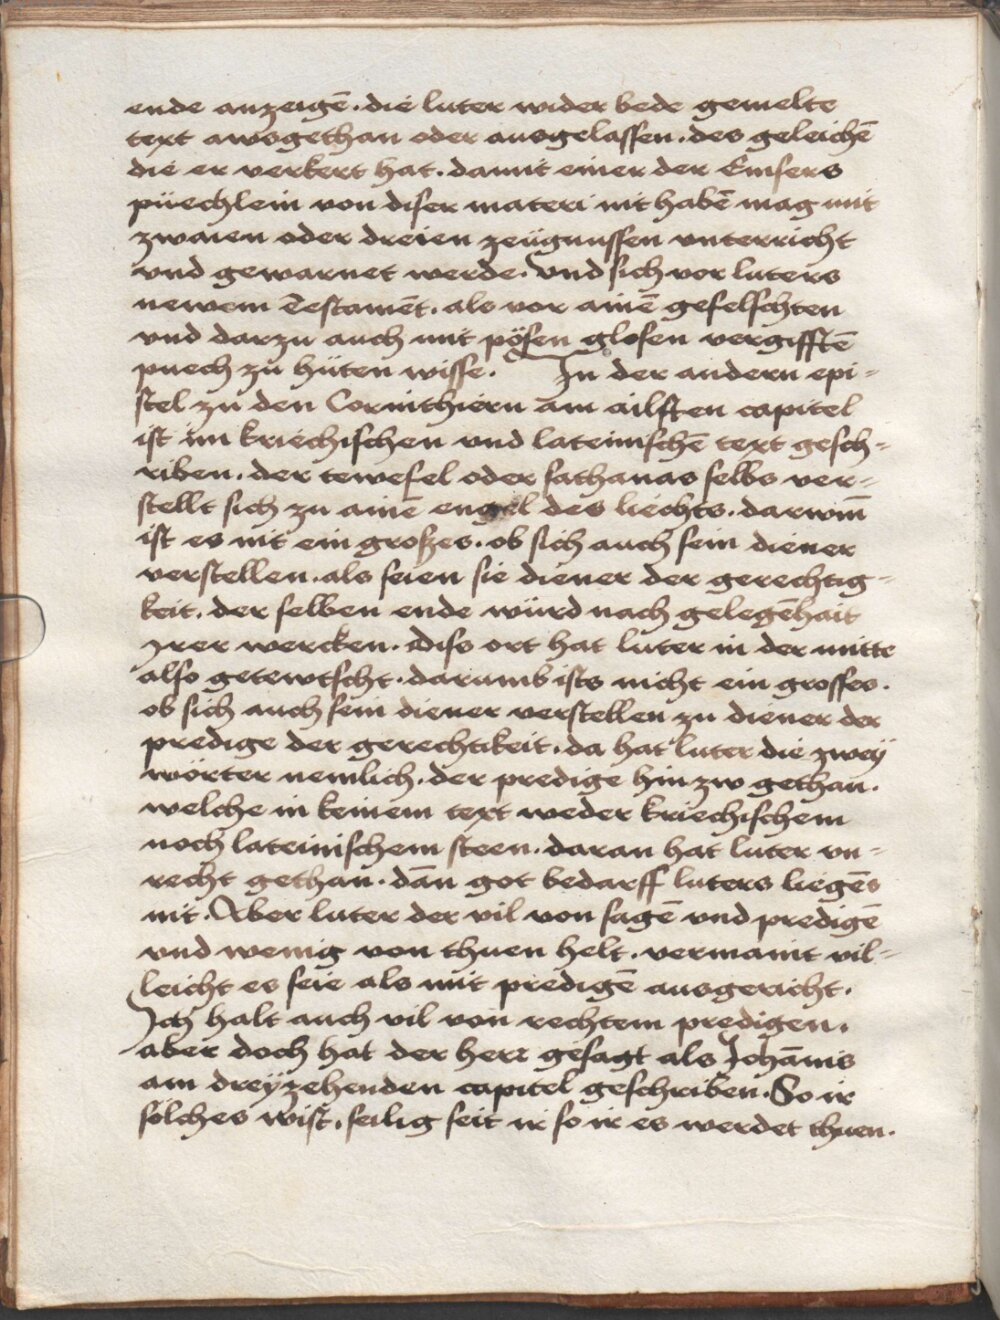 ende anzeigē. die luter wider bede gemelte
text awsgethan oder ausgelassen. des geleichē
die er verkert hat. damit einer der Emsers
püechlein von diser materi nit habē mag mit
zwaien oder dreien zeügnussen vnterricht
vnd gewarnet werde. Vnd sich vor luters
newem Testamēt. als vor ainē gefelschten
vnd darzu auch mit pösen glosen vergifftē
puech zu hüten wisse. In der andern epi-
stel zu den Corinthiern am ailften capitel
ist im kriechischen vnd lateinischē text gesch-
riben. der tewefel oder sathanas selbs ver-
stellt sich zu ainē engel des liechts. darwm̄
ist es nit ein großes. ob sich auch sein diener
verstellen. als seien sie diener der gerechtig-
keit. der selben ende würd nach gelegēhait
Irer wercken. Diss ort hat luter in der mitte
also getewtscht. darumb ists nicht ein grosses.
ob sich auch sein diener verstellen zu diener der
predige der gerechtikeit. da hat luter die zwey
wörter nemlich. der predige hin zw gethan.
welche in keinem text weder kriechischem
noch lateinischem steen. daran hat luter vn-
recht gethan. dan̄ got bedarff luters liegēs
nit. Aber luter der vil von sagē vnd predigē
vnd wenig von thuen helt. vermaint vil-
leicht es seie als mit predigē ausgericht.
Ich halt auch vil von rechtem predigen.
aber doch hat der herr gesagt als Johānis
am dreyzehenden capitel geschriben. So ir
sölches wist. selig seit ir so ir es werdet thuen.